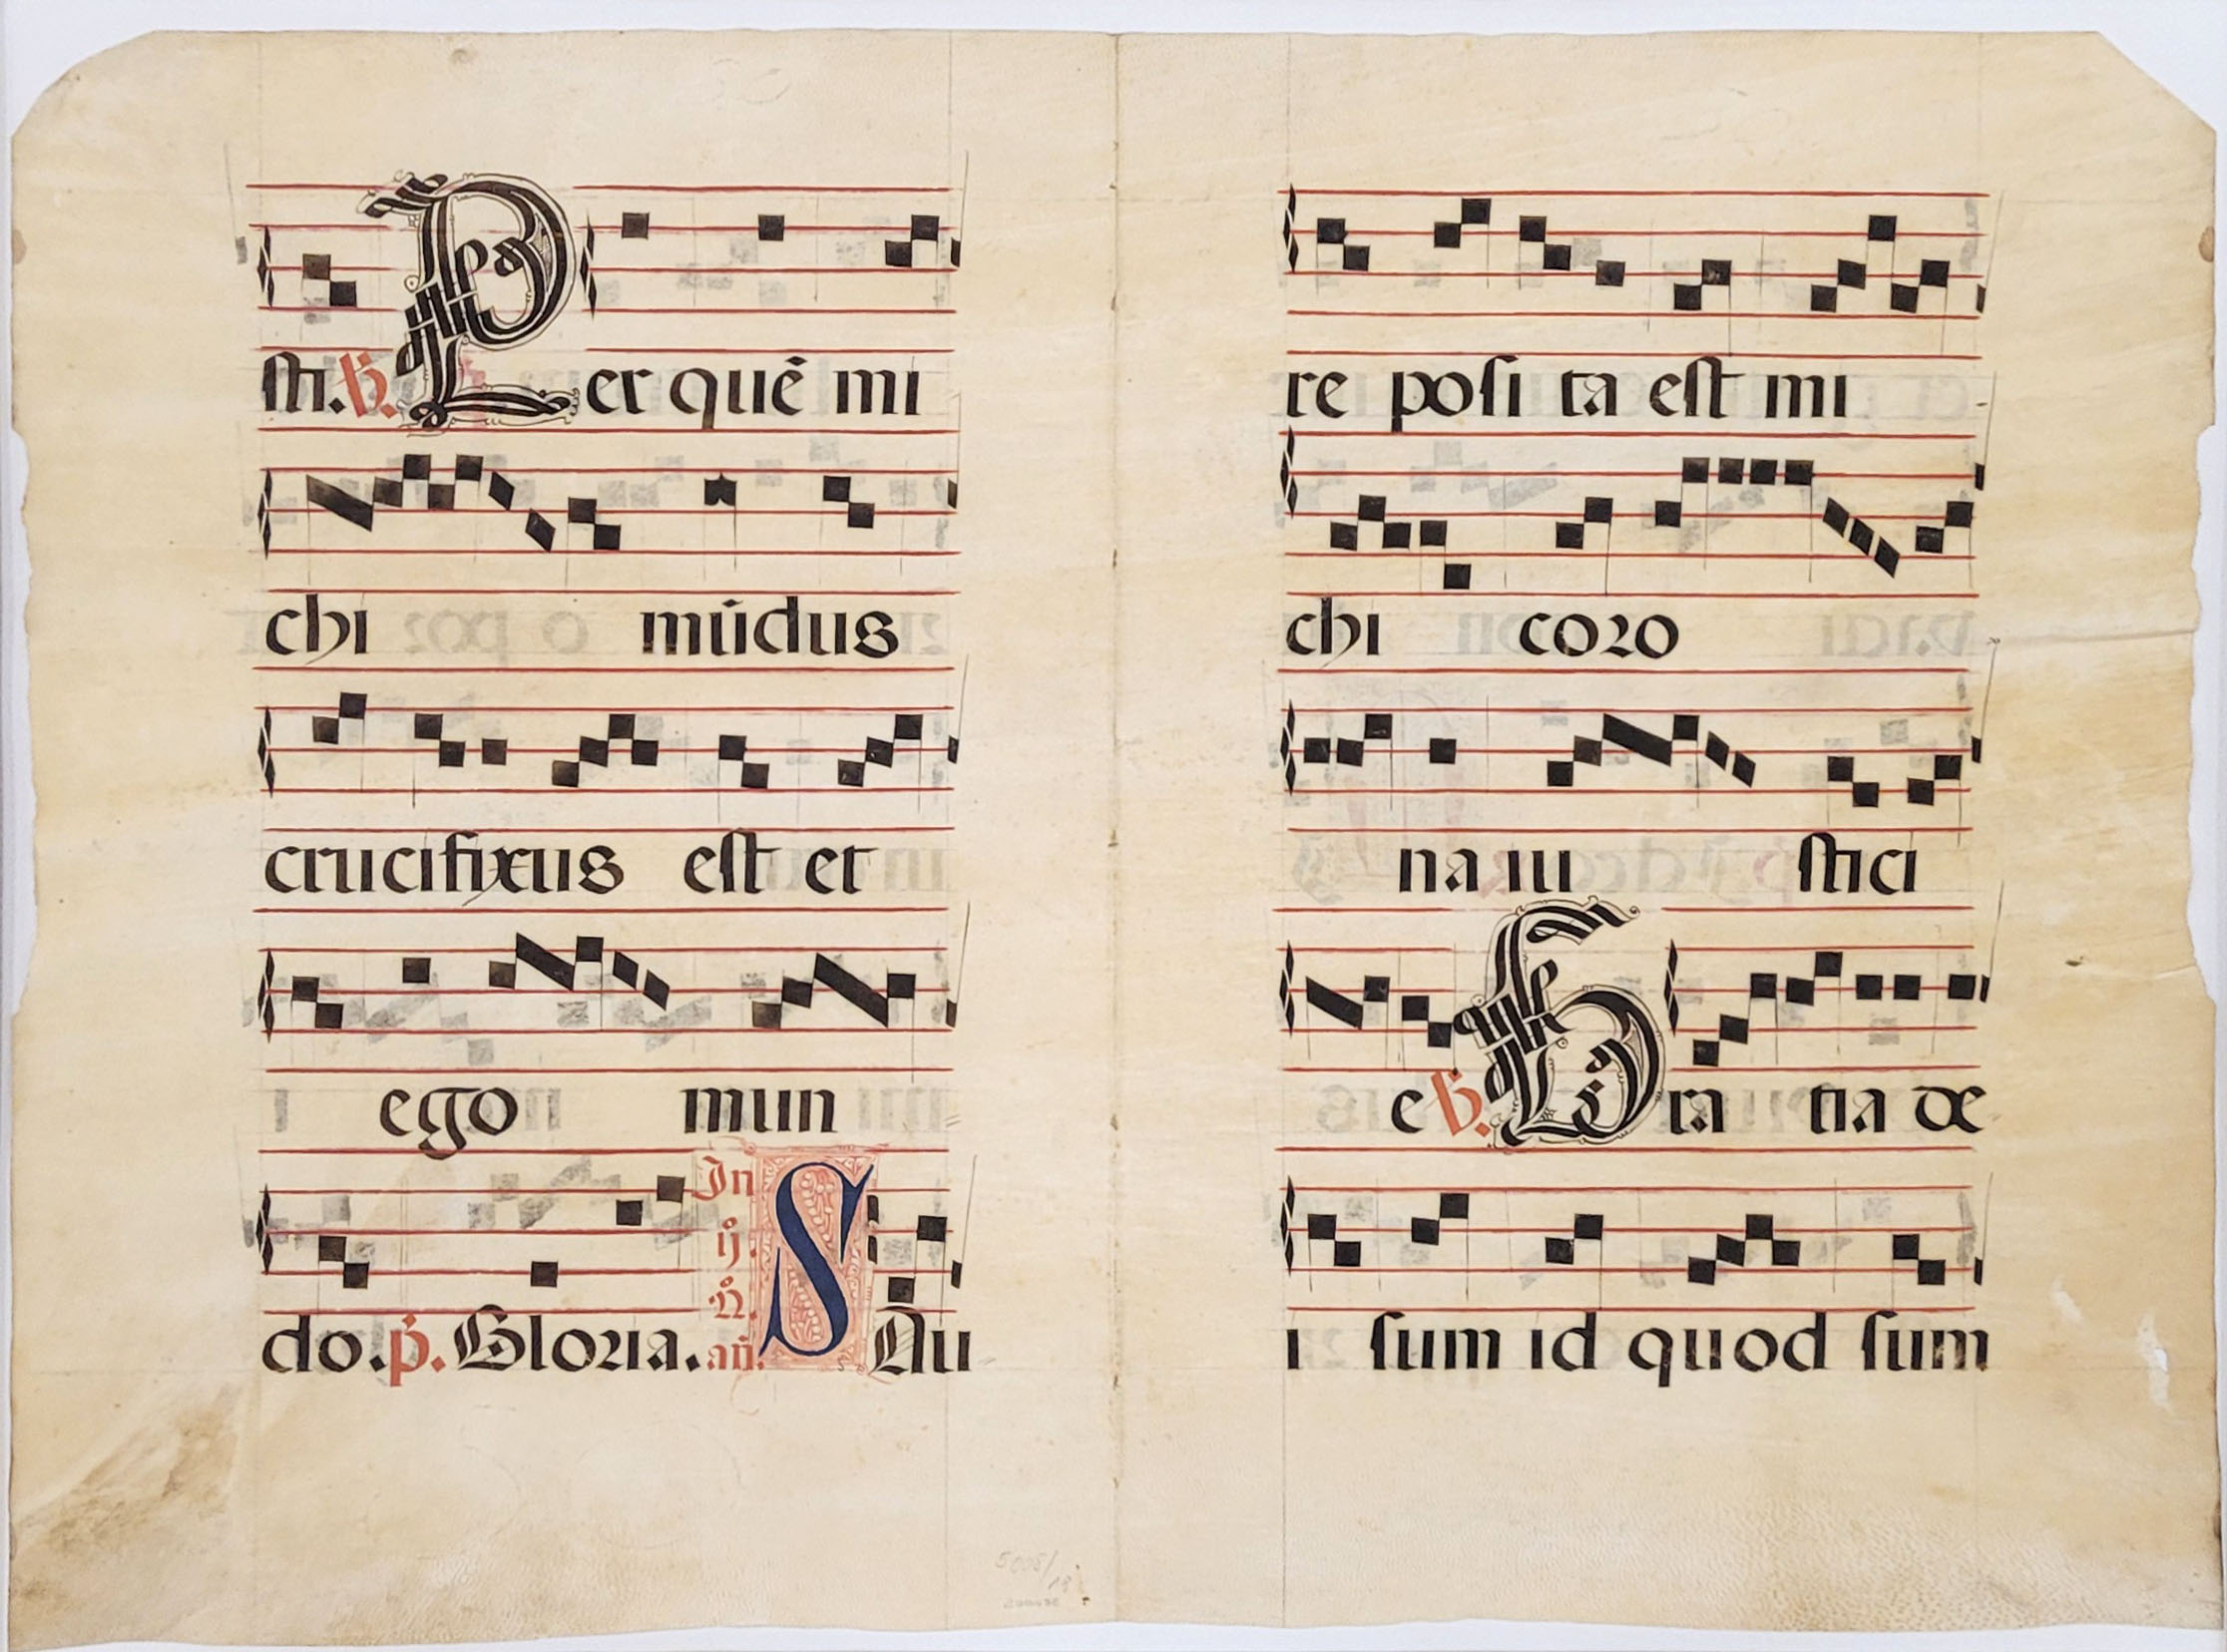 sti. ℣. Per quē mi
chi mūdus
crucifixus est et
ego mun
do. p̄. Gloria. In ij. N. añ. SAu
re posi ta est mi
chi coro
na iu stici
e ℣. Gra tia de
i sum id quod sum